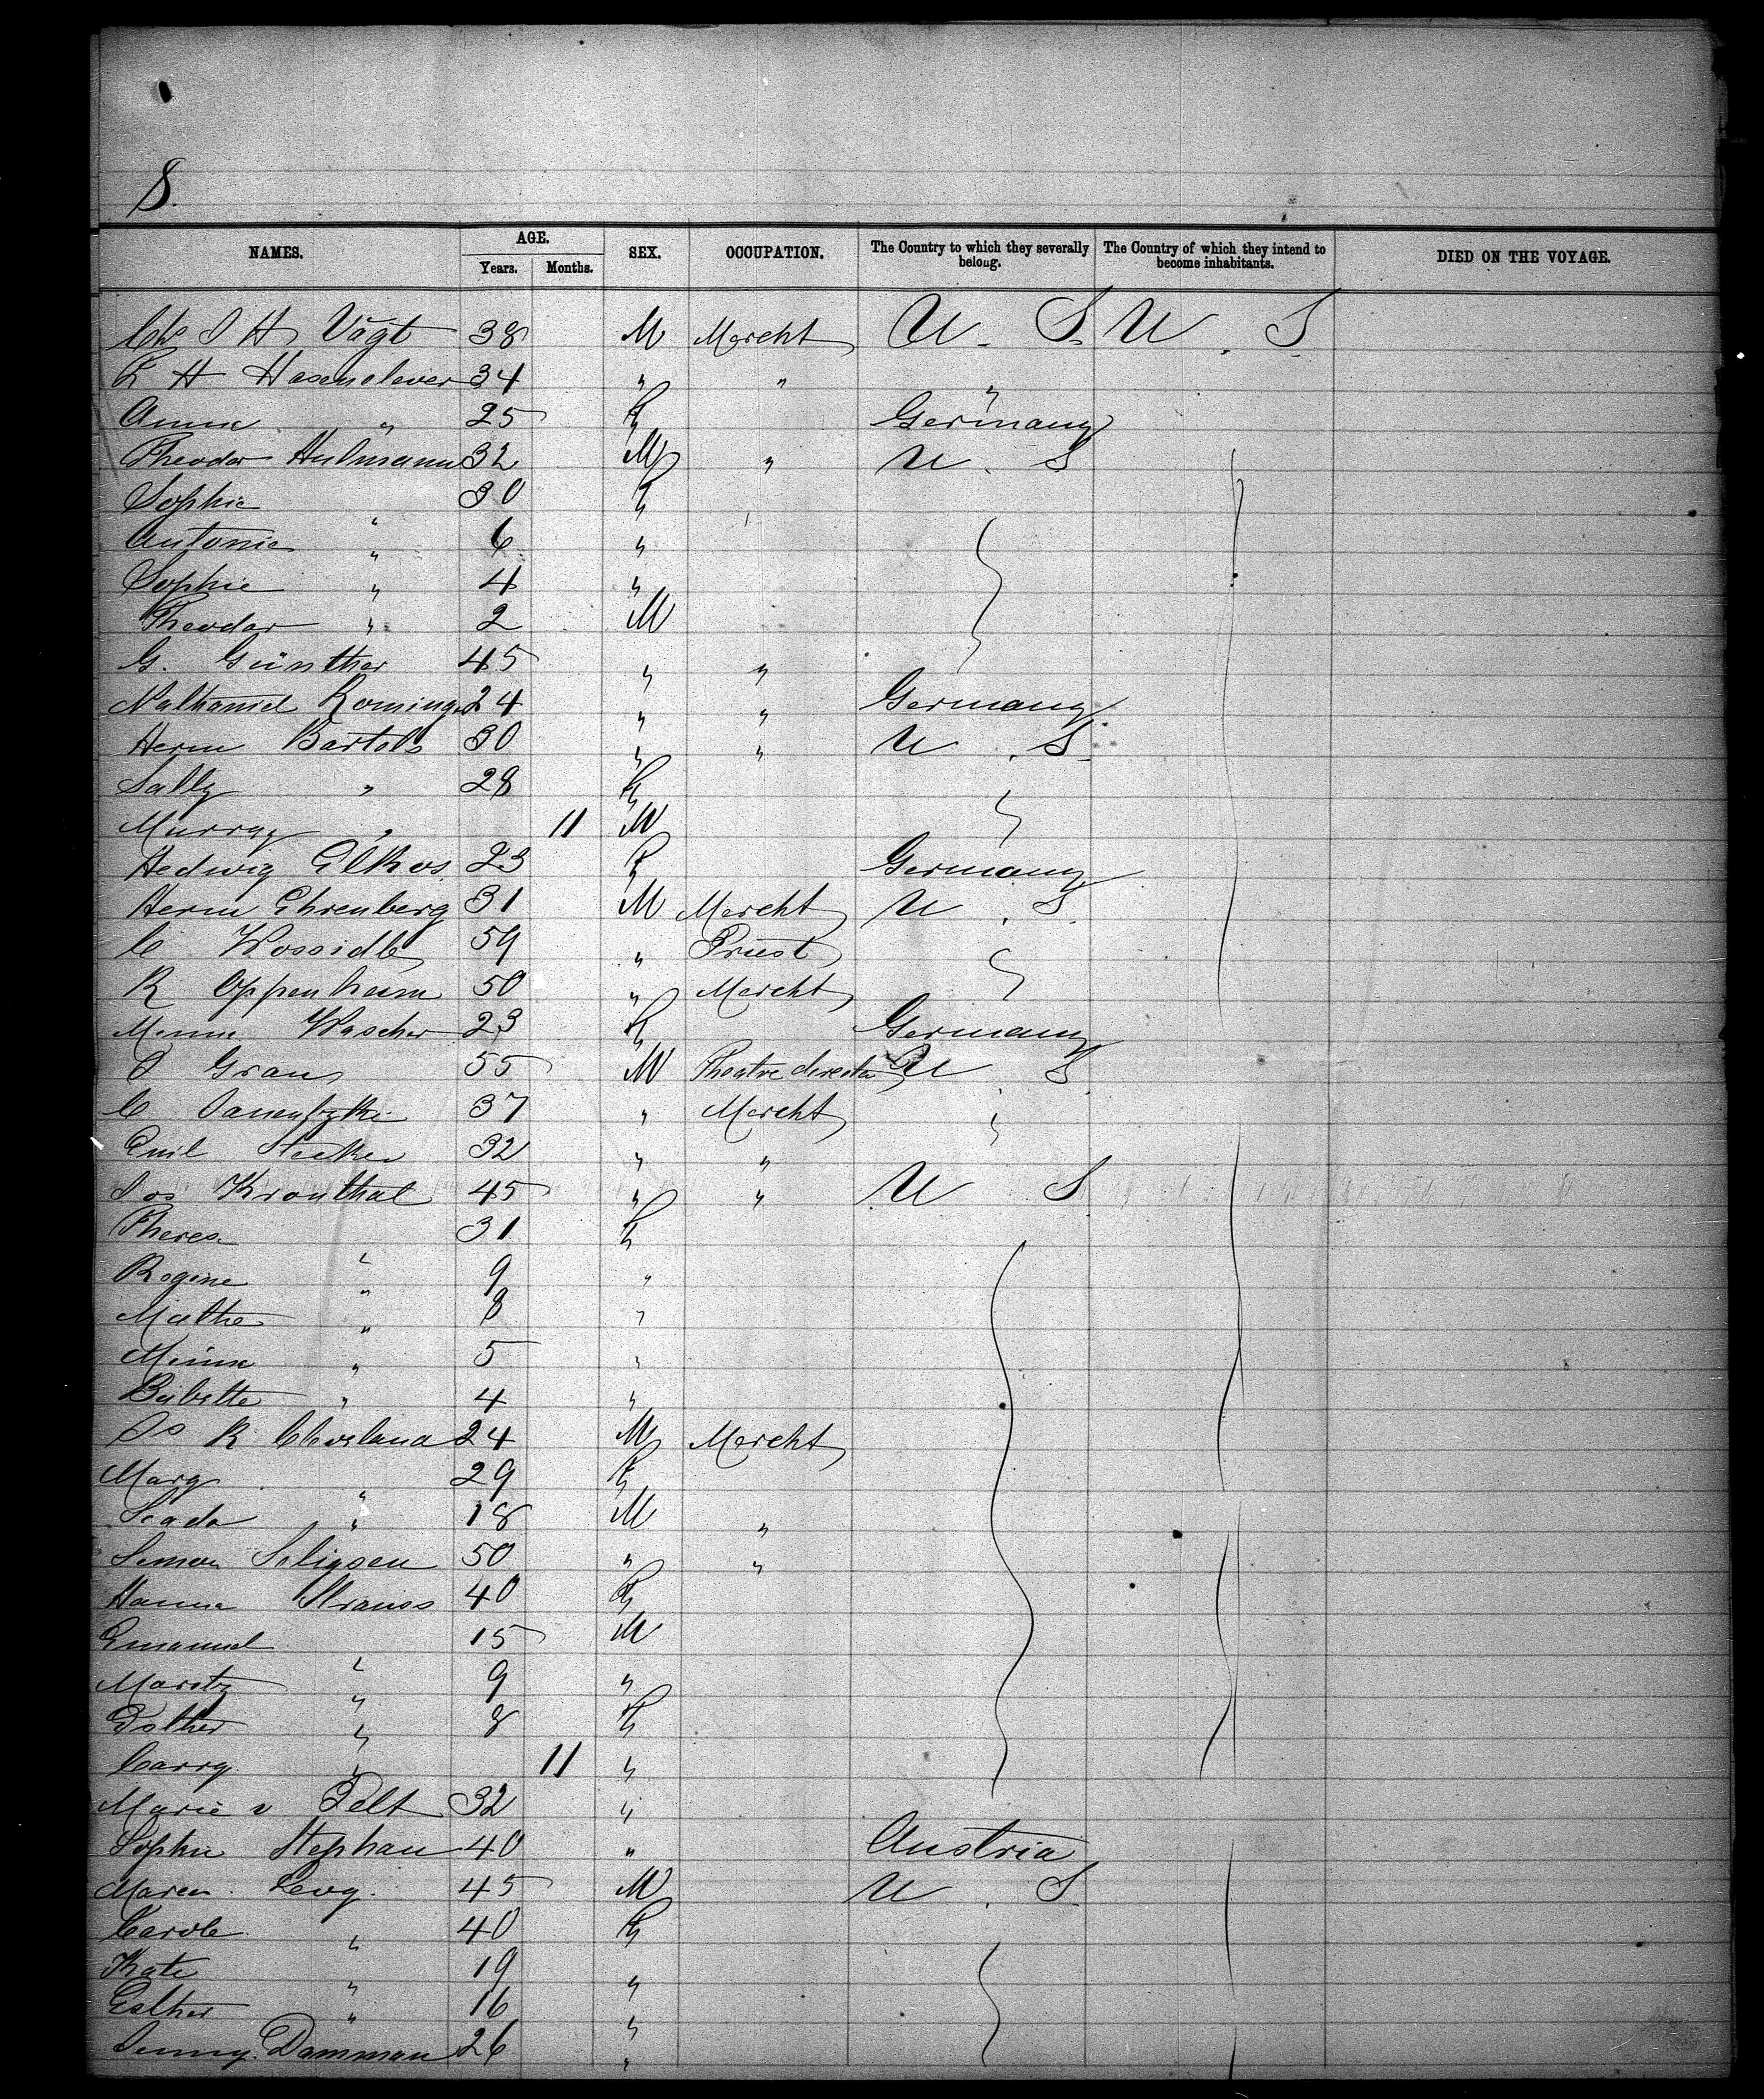 8.
NAMES. AGE. SEX. OCCUPATION. The Country to which they severally belong. The Country of which they intend to become inhabitants. DIED ON THE VOYAGE.
Years. Months.
Chs J H Vogt 38 M Morcht U. S. U. S
H Hasenclever 34 " " "
Anna " 25 F Germany
Theodor Hulmann 32 M " U. S
Sophie " 30 F
Antonie " 6 "
Sophie " 4 "
Theodor " 2 M
G. Günther 45 " "
Nathaniel Rominger 24 " " Germany
Herm Bartels 30 " " U. S.
Sally " 28 F
Murray " 11 M
Hedwig 23 F Germany
Herm Ehrenberg 31 M Mercht U. S.
C Wossidlo 59 " Priest
R Oppenheim 50 " Mercht
Minna Wascher 23 F Germany
J Grau 55 M Theatre director U. S.
C 37 " Mercht
Emil Stecker 32 " "
Jos Kronthal 45 " " U S
Theres " 31 F
Rogine " 9 "
Mathe " 8 "
Minna " 5 "
Babette " 4 "
R Cleveland 24 M Mercht
Mary " 29 F
" 18 M "
Simon Seligsen 50 " "
Hanna Strauss 40 F
Emanuel " 15 M
Moritz " 9 "
Esther " 8 F
Carry " 11 "
Marie v Pelt 32 "
Sophie Stephan 40 " Austria
Levy. 45 M U. S
Carole " 40 F
Kate " 19 "
Esther " 16 "
Jenny Damman 26 "